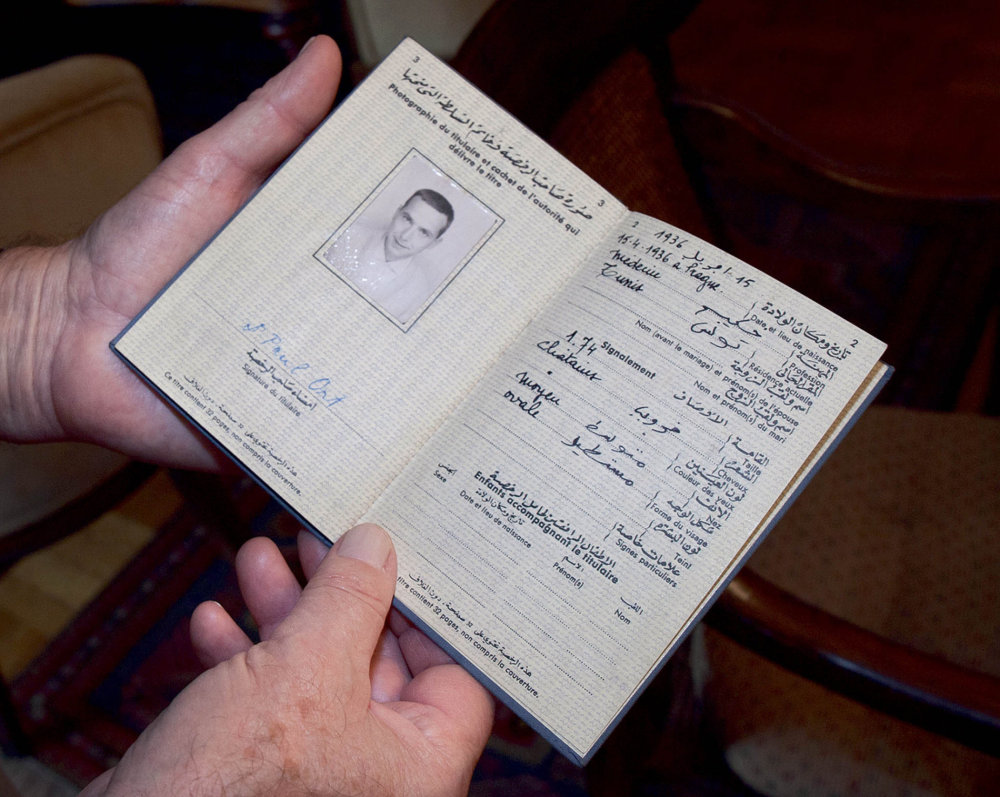 3
صورة صاحب الرخصة وخاتم السلطة التي منحتها
Photographie du titulaire et cachet de l'autorité qui
délivre le titre
3
Dr Paul Ort
امضاء صاحب الرخصة
Signature du titulaire
هذه الرخصة تحتوي على 32 صفحة، دون الغلاف
Ce titre contient 32 pages, non compris la couverture.
2
15 - افريل 1936
15.4.1936 a Prague
تاريخ ومكان الولادة
Date et lieu de naissance
2
medecin
حكيم
المهنة
Profession
Tunis
تونس
المقر الحالي
Résidence actuelle
اسم ولقب الزوجة
Nom (avant le mariage) et prénom(s) de l'épouse
اسم ولقب الزوج
Nom et prénom(s) du mari
Signalement
الاوصاف
1.74
القامة
Taille
chatains
الشعر
Cheveux
لون العينين
Couleur des yeux
moyen
متوسط
الانف
Nez
ovale
مستطيل
شكل الوجه
Forme du visage
لون البشرة
Teint
علامات خاصة
Signes particuliers
الاطفال المرافقين لحامل الرخصة
Enfants accompagnant le titulaire
الجنس
Sexe
تاريخ ومكان الولادة
Date et lieu de naissance
الاسم
Prénom(s)
اللقب
Nom
هذه الرخصة تحتوي على 32 صفحة، دون الغلاف
Ce titre contient 32 pages, non compris la couverture.